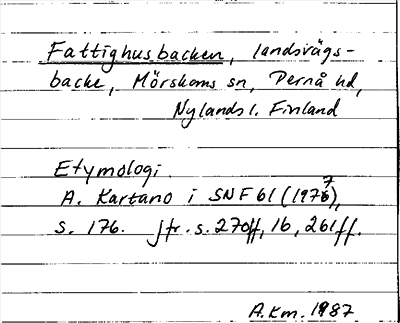 Fattighusbacken, landsvägs-
backe, Mörskoms sn, Pernå hd,
Nylands l. Finland
Etymologi.
A. Kartano i SNF 61 (1977),
s. 176. Jfr. s. 270ff, 16, 261ff.
A.Km. 1987